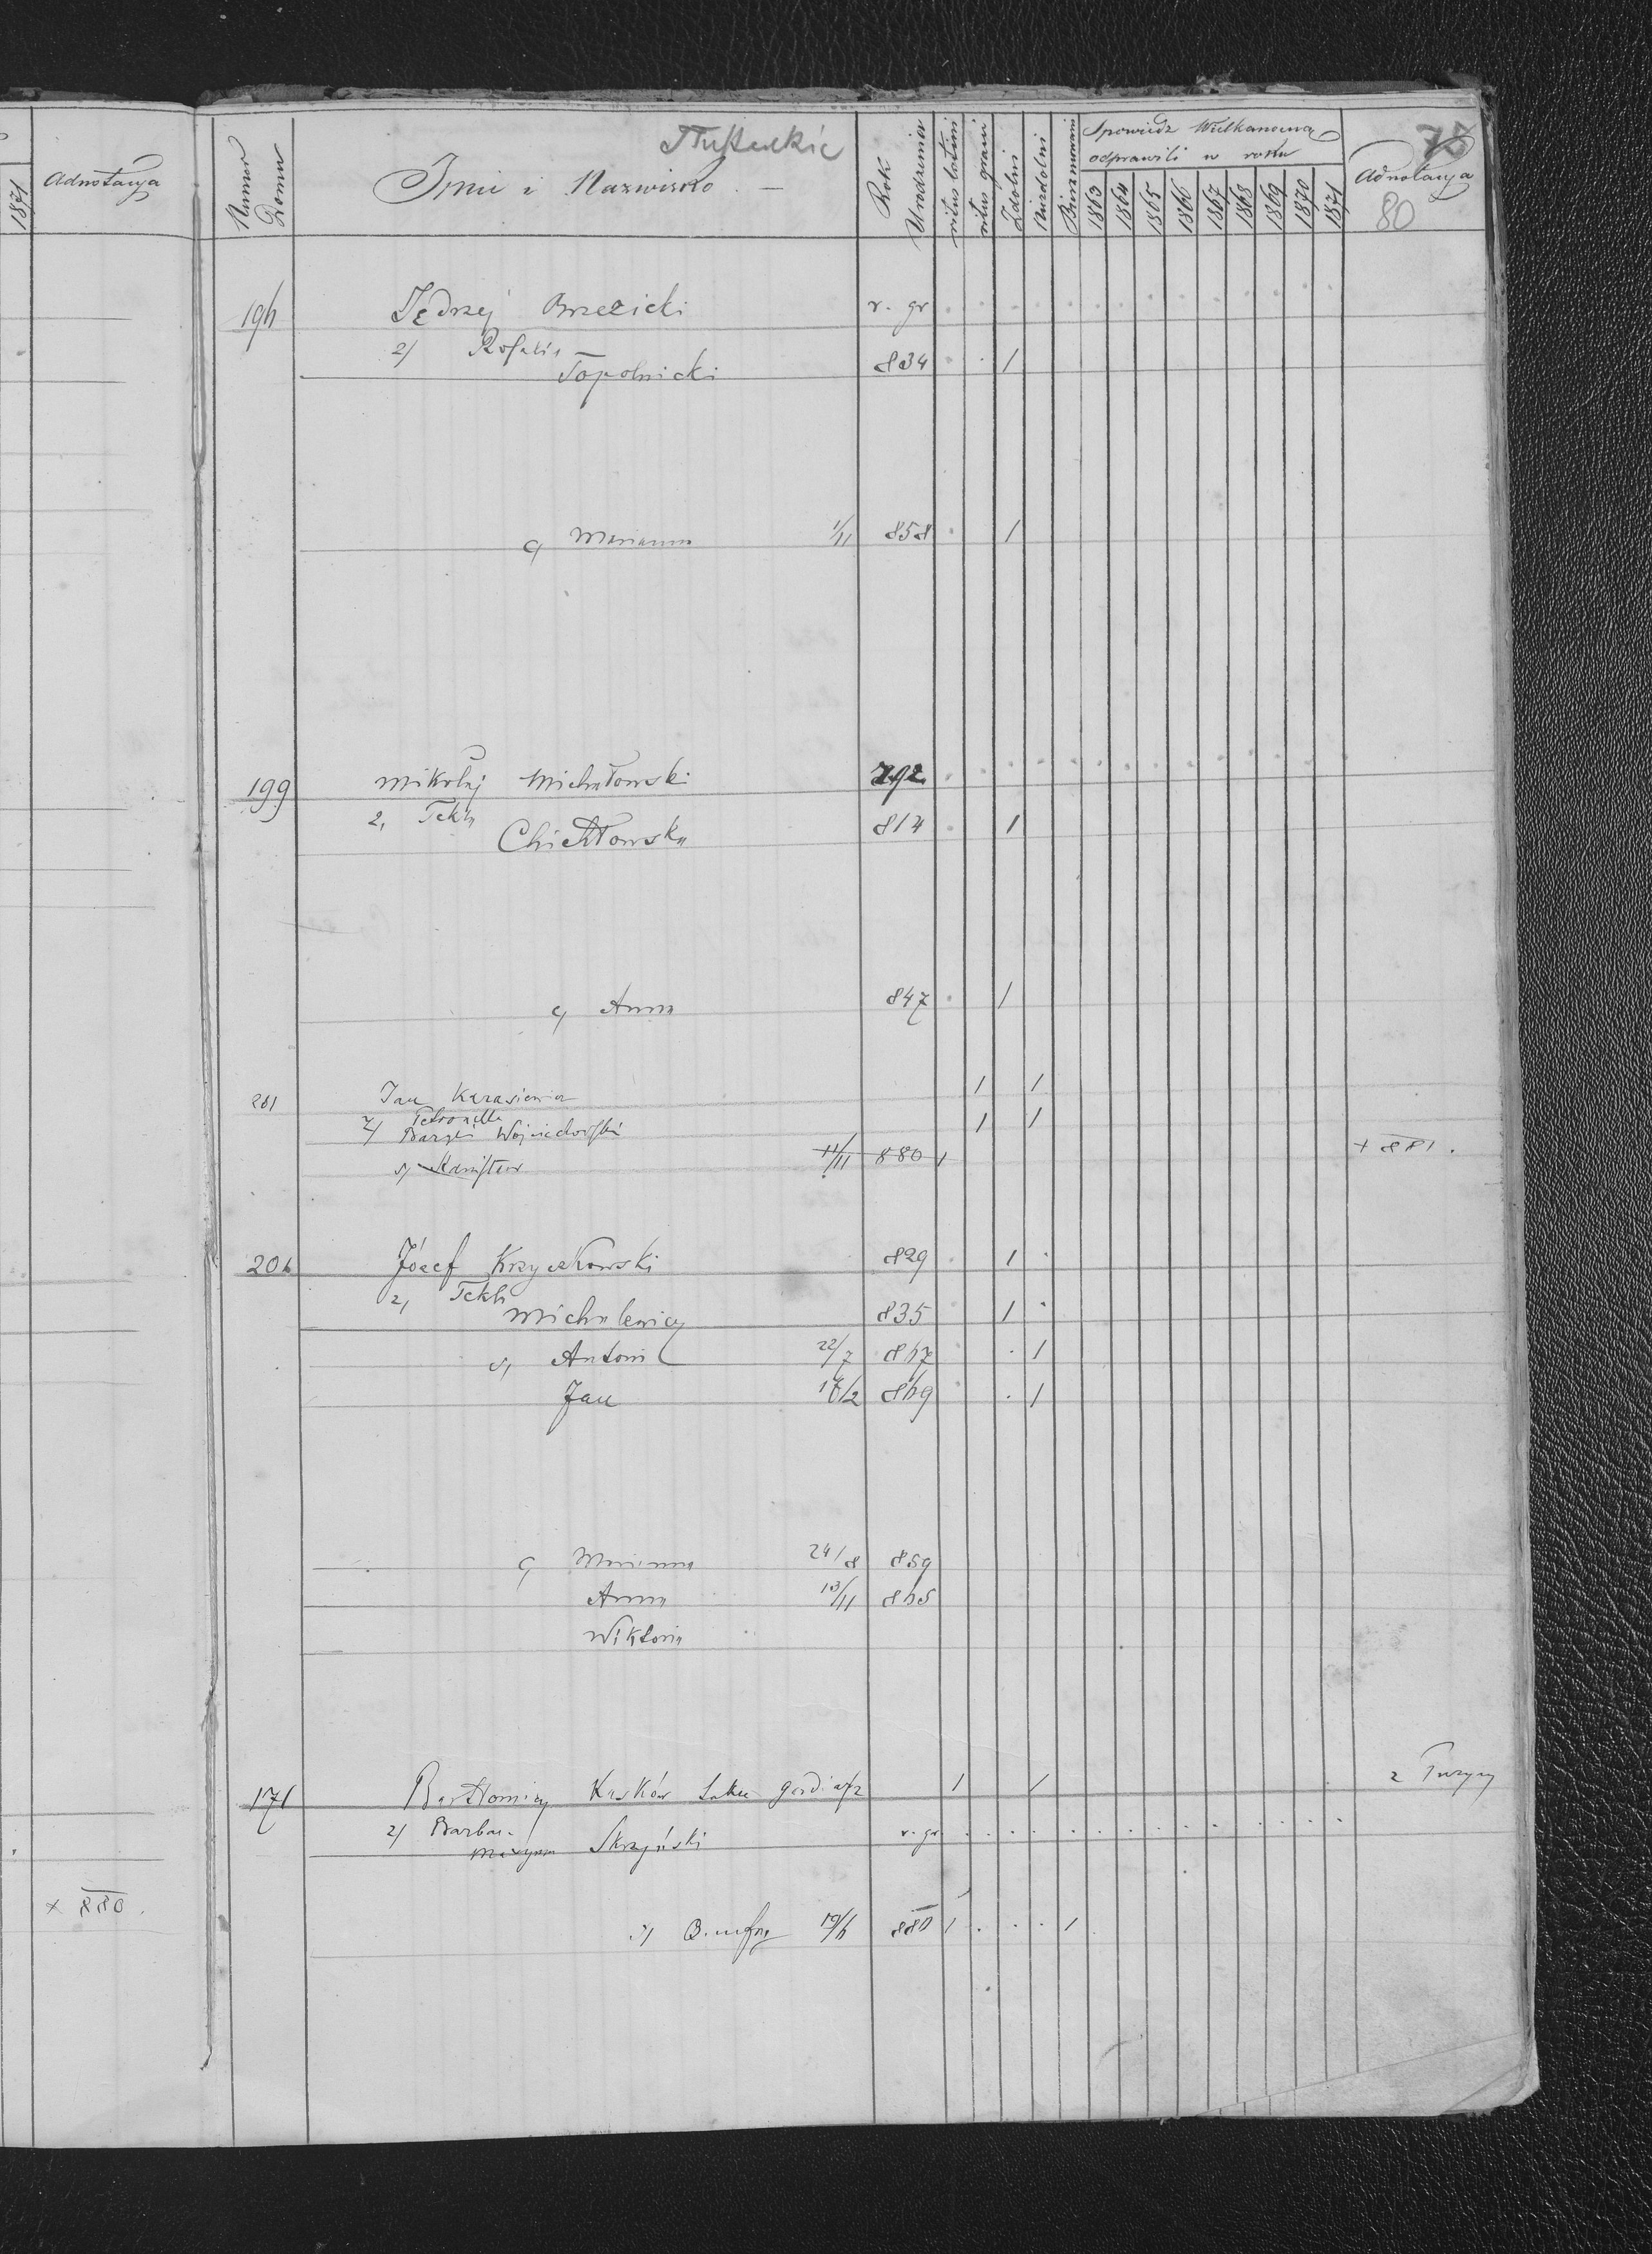 1871
Adnotacya
× 880.
Tłusteckie
75
80
Numer Domu
Imie i Nazwisko. —
Rok Urodzenia
ritus latini
ritus graeci
Zdolni
Niezdolni
Bierzmowani
Spowiedz Wielkanocną
odprawili w roku
1863 1864 1865 1866 1867 1868 1869 1870 1871
Adnotacya
196 Jędrzej Brzezicki r. gr
2/ Rosalia
Topolnicki 834 1
c/ Marianna 1/11 858 1
199 Mikołaj Michałowski 792
2, Tekla 814 1
c/ Anna 847 1
201 Jan Karasiewicz 1 1
2/ Petronella
Wojciechowski 1 1
s/ 11/11 880 1 + 881.
206 Józef Krzyczkowski 829 1
2, Tekla
Michalewicz 835 1
s, Antoni 22/7 867 1
Jan 869 1
c, Marianna 24/8 859
Anna 13/11 865
Wiktoria
171 Bartłomiej 1 1
2/ Barbara
Skrzyński r. gr
s/ 19/6 880 1 1